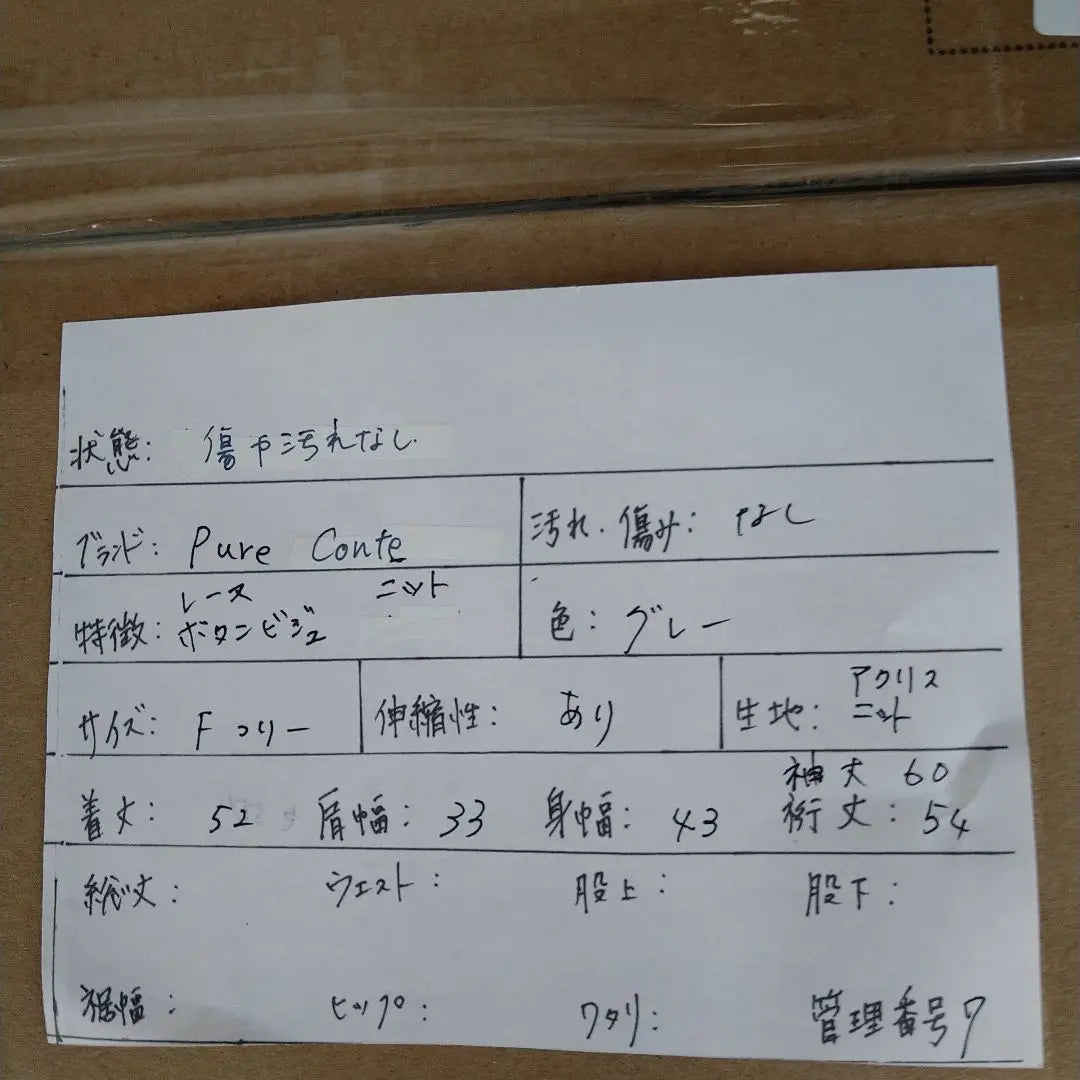 状態: 傷や汚れなし
ブランド: Pure Conte
汚れ・傷み: なし
特徴: レース ニット
ボタンビジュ
色: グレー
サイズ: F フリー
伸縮性: あり
生地: アクリス
ニット
着丈: 52 肩幅: 33 身幅: 43 袖丈 60
裄丈: 54
総丈: ウエスト: 股上: 股下:
裾幅: ヒップ: ワタリ: 管理番号7